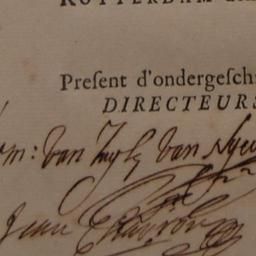 ROTTERDAM
Preſent d'ondergeſch
DIRECTEURS
m: Van Zuylz Van Nye
Jean Chavron